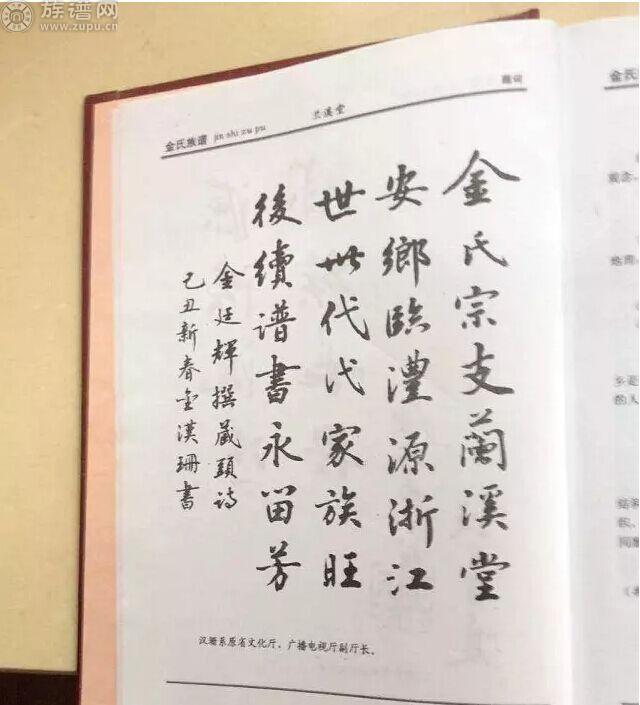 族谱网
www.zupu.cn
题词
兰溪堂
金氏族谱 jin shi zu pu
金氏宗支蘭溪堂
安鄉臨澧源浙江
世世代代家族旺
後續譜書永留芳
金廷輝撰藏頭詩
己丑新春金漢珊書
汉珊系原省文化厅、广播电视厅副厅长。
金氏族